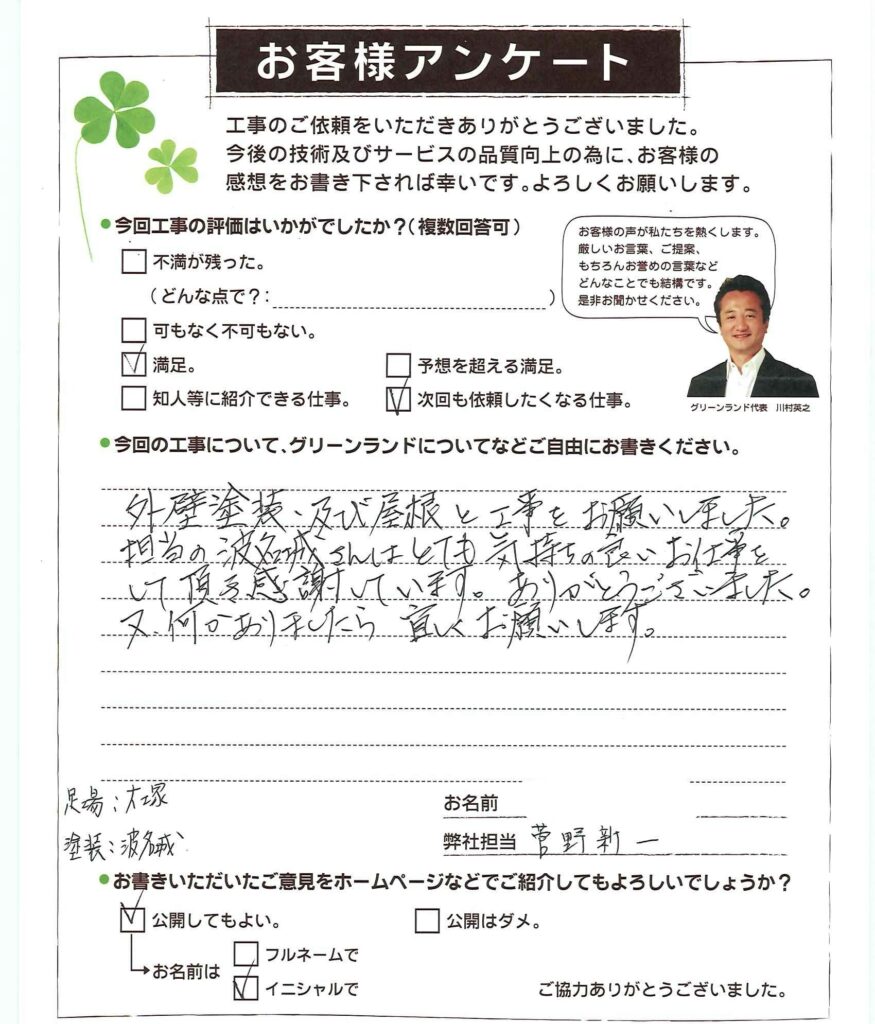 お客様アンケート
工事のご依頼をいただきありがとうございました。
今後の技術及びサービスの品質向上の為に、お客様の
感想をお書き下されば幸いです。よろしくお願いします。
●今回工事の評価はいかがでしたか？（複数回答可）
お客様の声が私たちを熱くします。
厳しいお言葉、ご提案、
もちろんお誉めの言葉など
どんなことでも結構です。
是非お聞かせください。
不満が残った。
（どんな点で？：　）
可もなく不可もない。
満足。　予想を超える満足。
知人等に紹介できる仕事。　次回も依頼したくなる仕事。
グリーンランド代表　川村英之
●今回の工事について、グリーンランドについてなどご自由にお書きください。
外壁塗装、及び屋根と工事をお願いしました。
担当の波名城さんはとても気持ちの良いお仕事を
して頂き感謝しています。ありがとうございました。
又、何かありましたら宜しくお願いします。
足場：大塚
お名前
塗装：波名城
弊社担当　菅野新一
●お書きいただいたご意見をホームページなどでご紹介してもよろしいでしょうか？
公開してもよい。　公開はダメ。
お名前は
フルネームで
イニシャルで
ご協力ありがとうございました。